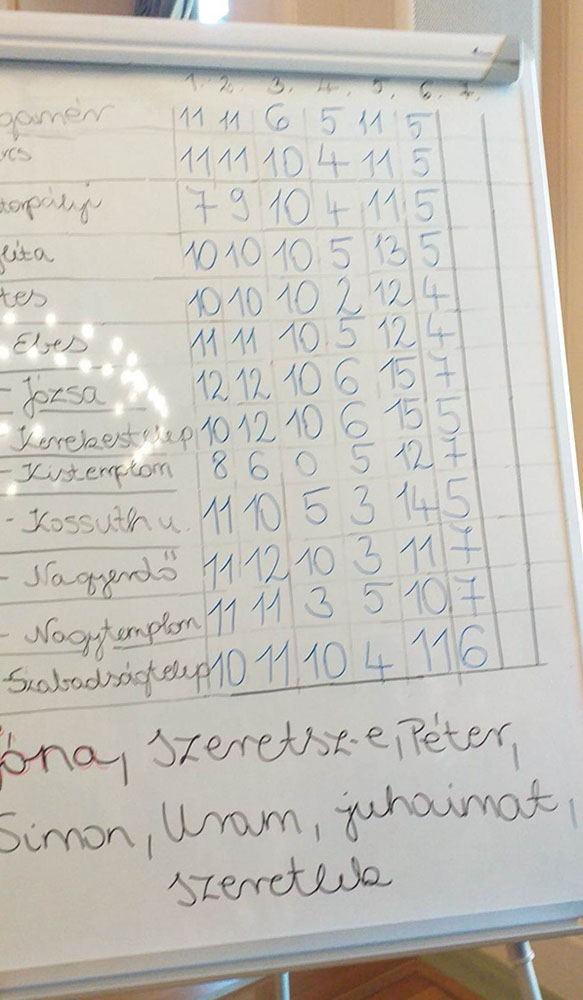 1. 2. 3. 4. 5. 6. 7.
gamér 11 11 6 5 11 5
rcs 11 11 10 4 11 5
torpályi 7 9 10 4 11 5
léta 10 10 10 5 13 5
tes 10 10 10 2 12 4
Ebes 11 11 10 5 12 4
- Józsa 12 12 10 6 15 7
- Kerekestelep 10 12 10 6 15 5
- Kistemplom 8 6 0 5 12 7
- Kossuth u. 11 10 5 3 14 5
- Nagyerdő 11 12 10 3 11 7
- Nagytemplom 11 11 3 5 10 7
Szabadságtelep 10 11 10 4 11 6
jóna, szeretsz-e, Péter,
Simon, Uram, juhaimat,
szeretlek